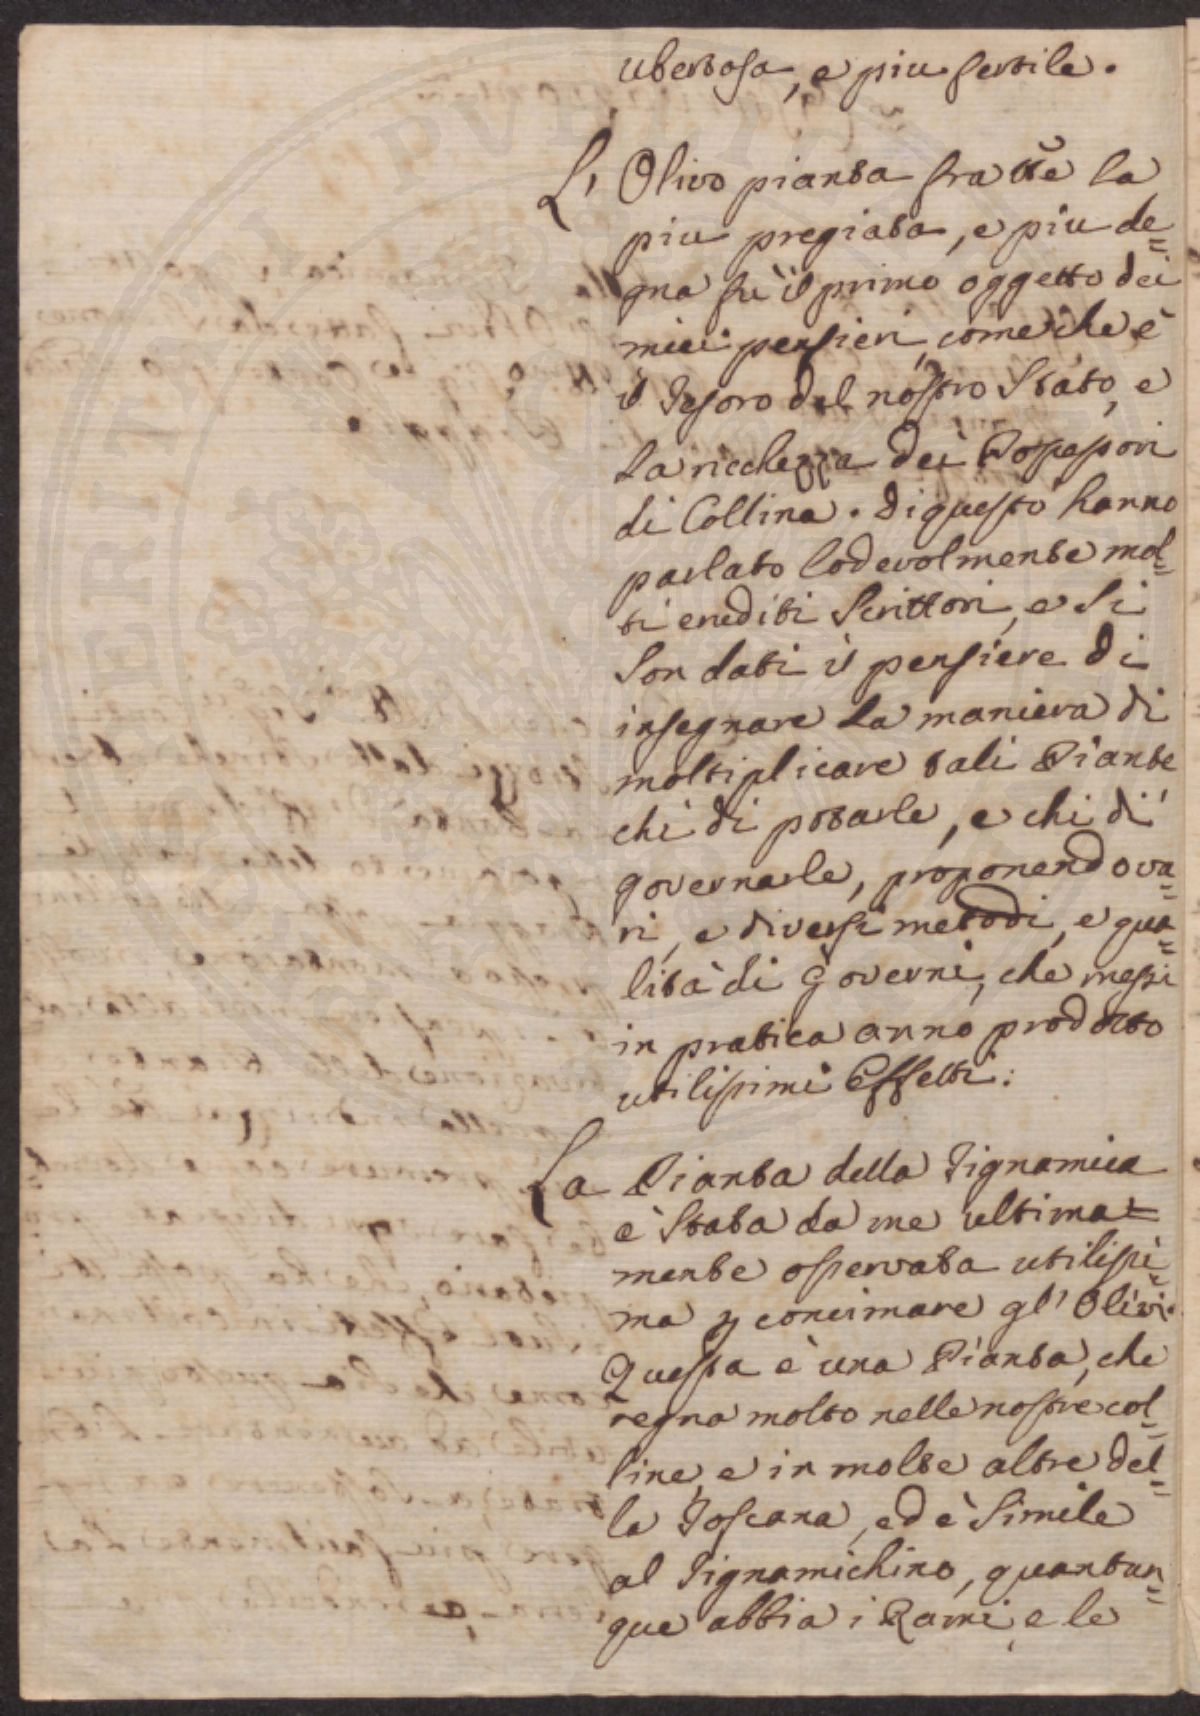 ubertosa, e piu fertile.
L' Olivo pianta fra tt̃e la
piu pregiata, e piu de=
gna fu il primo oggetto dei
miei pensieri, come che è
il Tesoro del nostro Stato, e
La ricchezza dei Possessori
di Collina. Di questo hanno
parlato lodevolmente mol=
ti eruditi Scrittori, e Si
Son dati il pensiere di
insegnare La maniera di
moltiplicare tali Piante
chi di potarle, e chi di
governarle, proponendo va=
ri, e diversi metodi, e qua=
lità di Governi, che messi
in pratica anno prodotto
utilissimi Effetti:
La Pianta della Tignamica
è Stata da me ultima=
mente osservata utilissi=
ma p concimare gl' Olivi.
Questa è una Pianta, che
regna molto nelle nostre col=
line, e in molte altre del=
la Toscana, ed è Simile
al Tignamichino, quantun=
que abbia i Rami, e le